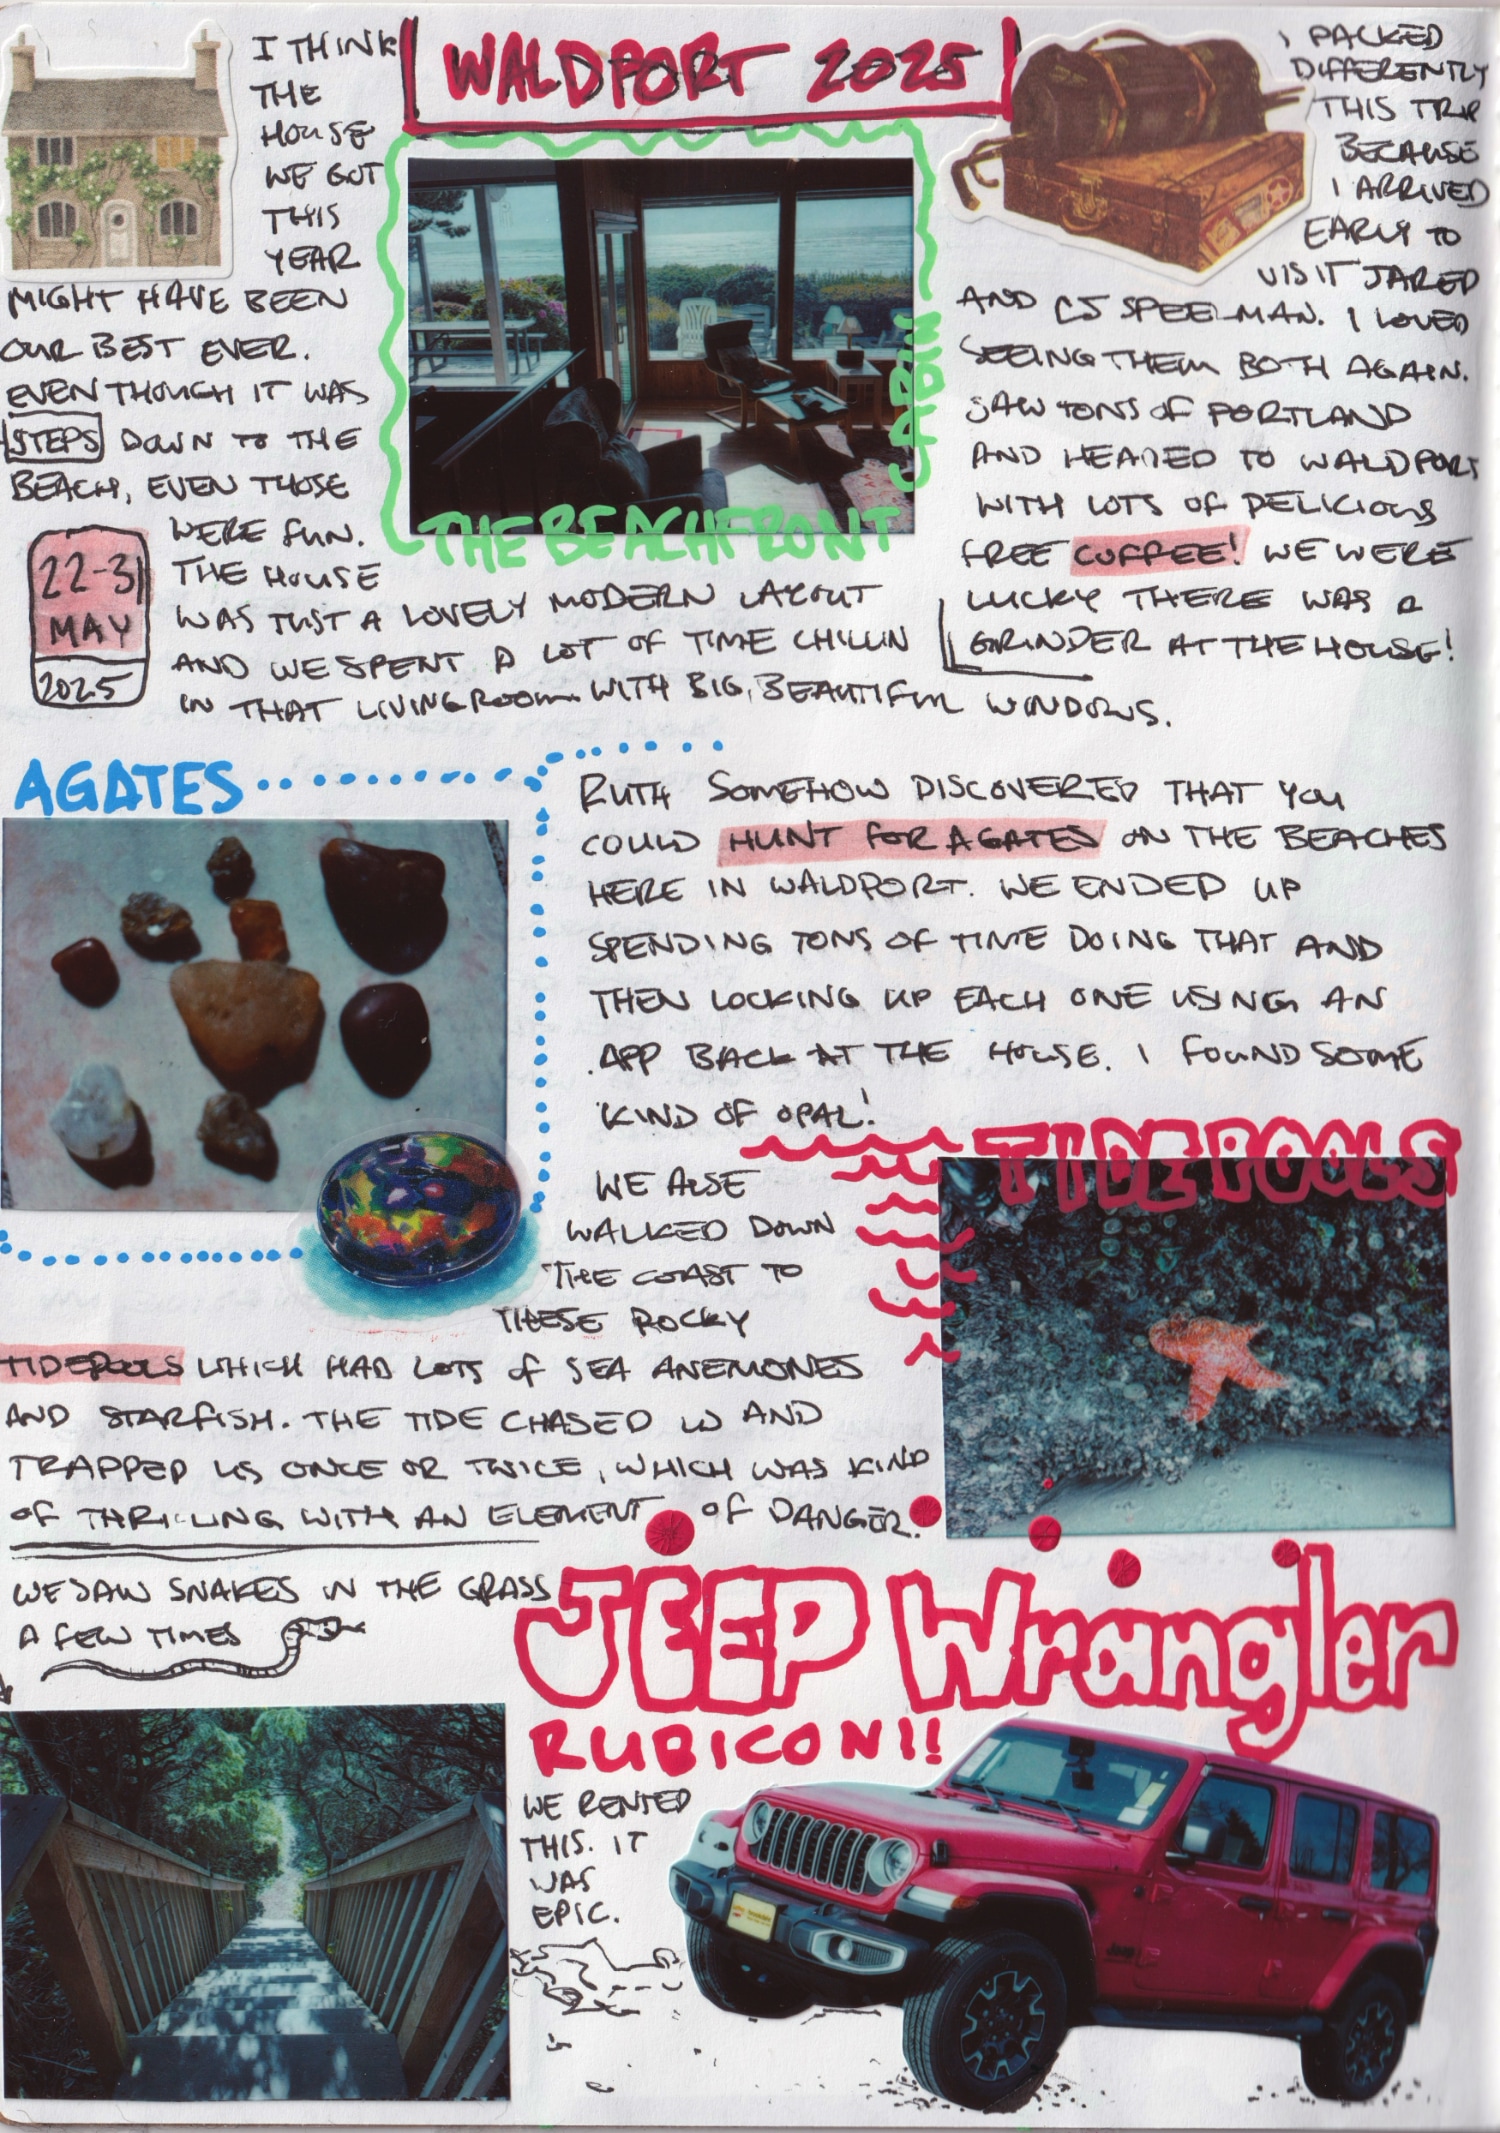 WALDPORT 2025
I THINK
THE
HOUSE
WE GOT
THIS
YEAR
MIGHT HAVE BEEN
OUR BEST EVER.
EVEN THOUGH IT WAS
STEPS DOWN TO THE
BEACH, EVEN THOSE
WERE FUN.
THE HOUSE
WAS JUST A LOVELY MODERN LAYOUT
AND WE SPENT A LOT OF TIME CHILLIN
IN THAT LIVINGROOM WITH BIG, BEAUTIFUL WINDOWS.
22-31
MAY
2025
THE BEACHFRONT
CABIN
I PACKED
DIFFERENTLY
THIS TRIP
BECAUSE
I ARRIVED
EARLY TO
VISIT JARED
AND CJ SPEELMAN. I LOVED
SEEING THEM BOTH AGAIN.
SAW TONS OF PORTLAND
AND HEADED TO WALDPORT
WITH LOTS OF DELICIOUS
FREE COFFEE! WE WERE
LUCKY THERE WAS A
GRINDER AT THE HOUSE!
AGATES
RUTH SOMEHOW DISCOVERED THAT YOU
COULD HUNT FOR AGATES ON THE BEACHES
HERE IN WALDPORT. WE ENDED UP
SPENDING TONS OF TIME DOING THAT AND
THEN LOOKING UP EACH ONE USING AN
APP BACK AT THE HOUSE. I FOUND SOME
KIND OF OPAL!
TIDEPOOLS
WE ALSE
WALKED DOWN
THE COAST TO
THESE ROCKY
TIDEPOOLS WHICH HAD LOTS OF SEA ANEMONES
AND STARFISH. THE TIDE CHASED US AND
TRAPPED US ONCE OR TWICE, WHICH WAS KIND
OF THRILLING WITH AN ELEMENT OF DANGER.
WE SAW SNAKES IN THE GRASS
A FEW TIMES
JEEP Wrangler
RUBICON!!
WE RENTED
THIS. IT
WAS
EPIC.